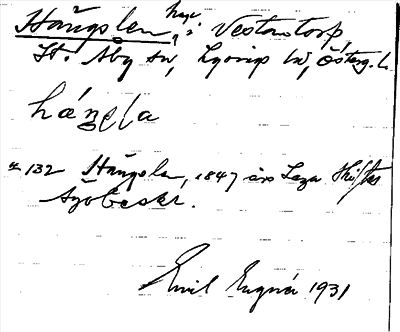 Hängslen, hage i Vestantorp
St. Åby sn, Lysings hd, Österg. l.
hángsla
nr 132 Hängslen, 1847 års Laga Skiftes
Ägobeskr.
Emil 1931